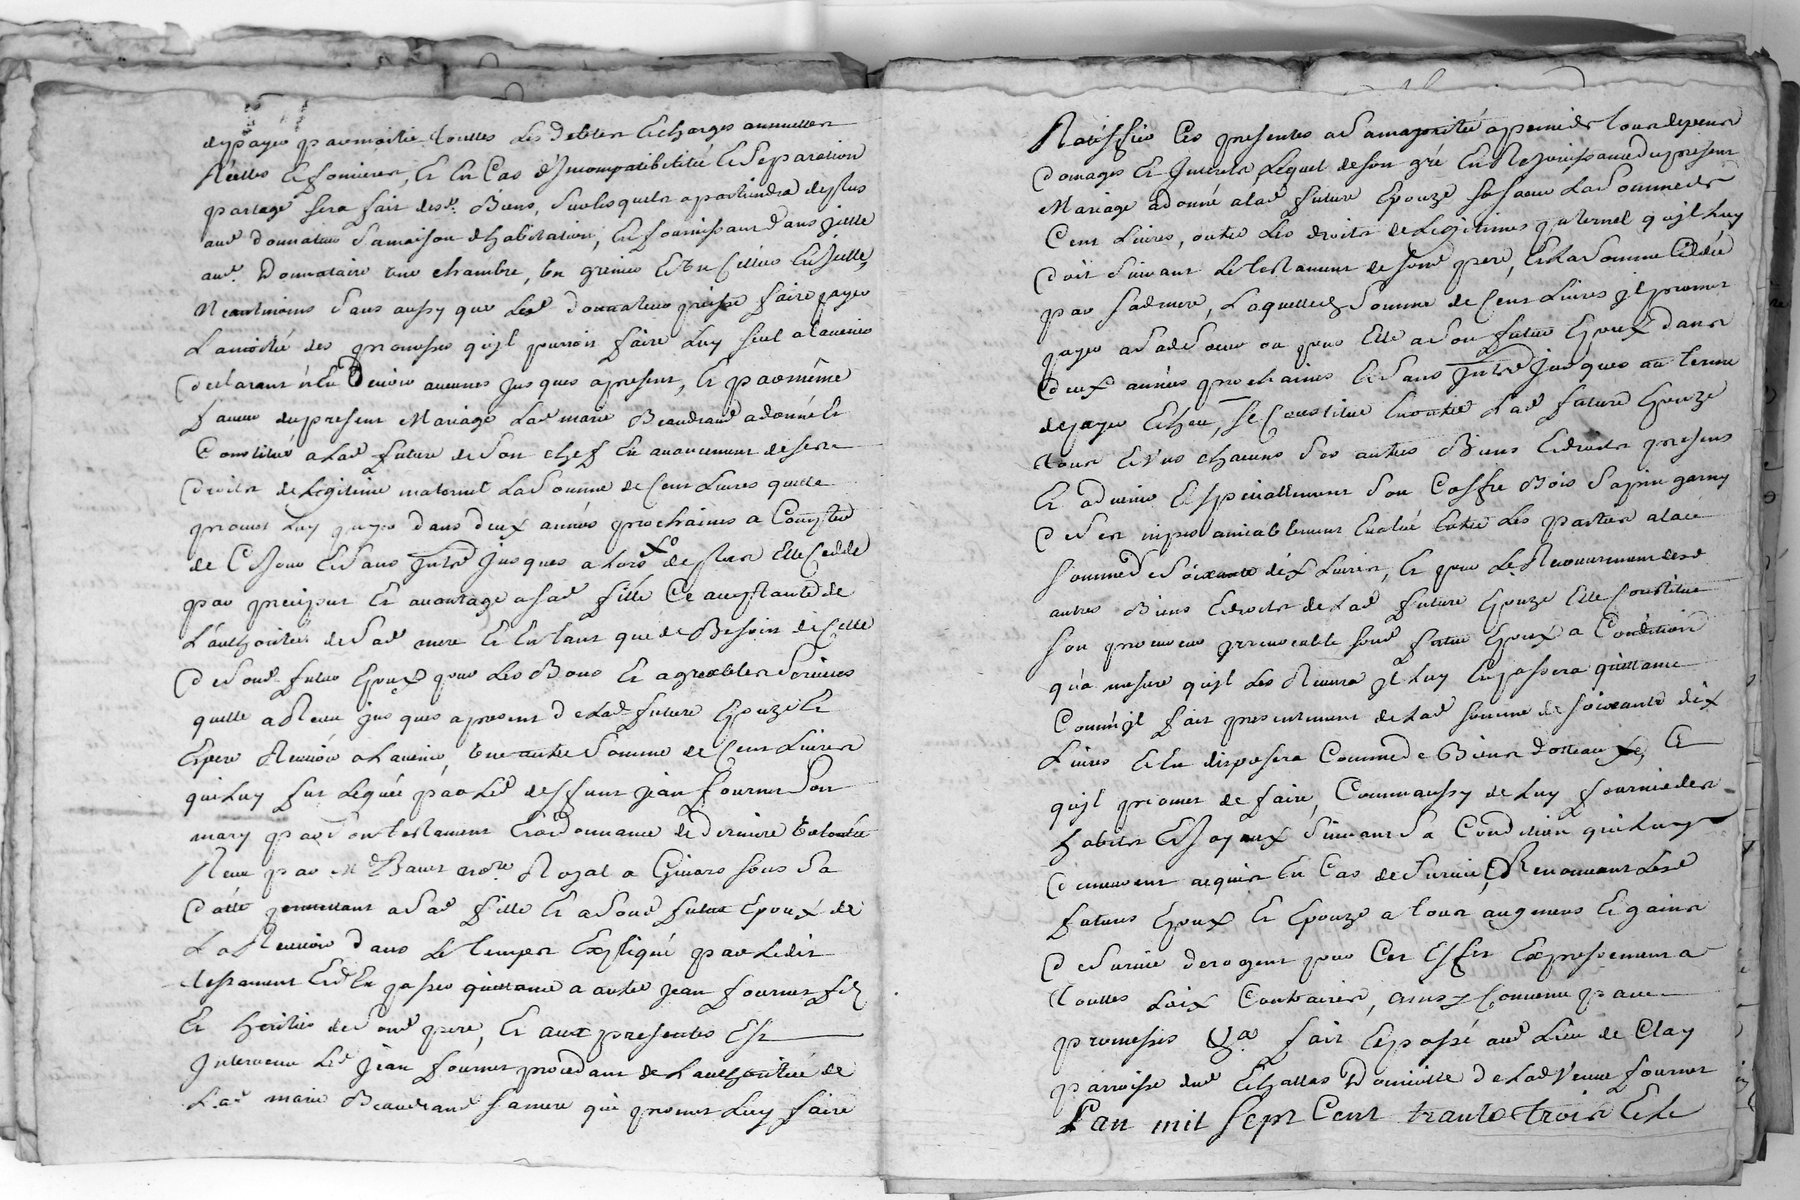 de payer par moitié touttes les debtes et charges annuelles
Réelles et fonsieres, et en Cas d'Jncompatibitité et separation
partage sera fait desd. Biens, surlesquels apartiendra de plus
aud donnateur sa maison d'habitation, en fournissant dans jcelle
aud. Donnataire une chambre, un grenier et un Cellier en jcelle,
Neantmoins sans aussy que led donnateur puisse faire payer
la moitié des promesses qu'jl pourroit faire luy seul a l'avenir
declarant n'En devoir aucunes jusques apresent, et par même
faveur du present Mariage lad marie Beaudrand a donné et
Constitué a lad future de son chef en avancement de ses
droits de legitime maternel la somme de Cent Livres quelle
promet luy payer dans deux années prochaines a Compter
de Ce jour et sans jnterest jusques alors de plus Elle Cedde
par preciput et avantage a sad fille Ce acceptante de
l'authorité de sad mere et en tant que de Besoin de Celle
de sond. futur Epoux pour les Bons et agreables services
quelle a Receu jusques apresent de lad future Epouze et
Espere Recevoir a l'avenir, une autre somme de Cent Livres
qui luy fut leguée par led deffunt jean fournet son
mary par son testament et ordonnance de derniere volonté
Receu par Me Baust nore. Royal a Givors sous sa
datte permettant a sad fille et a sond futur Epoux de
la Recevoir dans le temps Expliqué par ledit
testament et d'En passer quittance a autre jean fournet fils
et heritier de sond pere, et aux presentes Est
Intervenu led jean fournet procedant de l'authorité de
lad. marie Beaudrand sa mere qui promet luy faire
Ratiffier Ces presentes a sa majorité a peine de tous depens
domages et Interets lequel de son gré en Rejouissance du present
Mariage a donné a lad future Epouze sa soeur la somme de
Cent Livres, outre les droits de legitimes paternel qu'jl luy
doit suivant le testament de sond pere, et la somme Ceddée
par sad mere, laquelle somme de Cent Livres jl promet
payer a sad soeur ou pour Elle a son futur Epoux dans
deux années prochaines et sans jnterest jusques au terme
de payer Echeu, se Constitue en outre lad future Epouze
tous et uns chacuns ses autres Biens et droits presens
et advenir et specialement son Coffre Bois sapin garny
de ses nipes amiablement Evalué entre les parties a la
somme de soixante dix Livres, et pour le Recouvrement desd
autres Biens et droits de lad future Epouze Elle Constitue
son procureur jrrevocable sond futur Epoux a Condition
qu'a mesure qu'jl les Recevra jl luy en passera quittance
Comm'jl fait presentement de lad somme de soixante dix
Livres et en disposera Comme de Biens dotteaux, Ce
qu'jl promet de faire, Comm'aussy de luy fournir des
habits et joyaux suivant sa Condition qui luy
demeureront acquis en Cas de survie, Renonçant lesd
futurs Epoux et Epouze a tous augmens et gains
de survie derogent pour Cet Effet Expressement a
touttes Loix Contraires, ainsy Convenu par
promesses &a fait et passé aud lieu de Clay
parroisse dud Echallas Domicille de lad Veuve fournet
l'an mil sept Cent trante trois et le